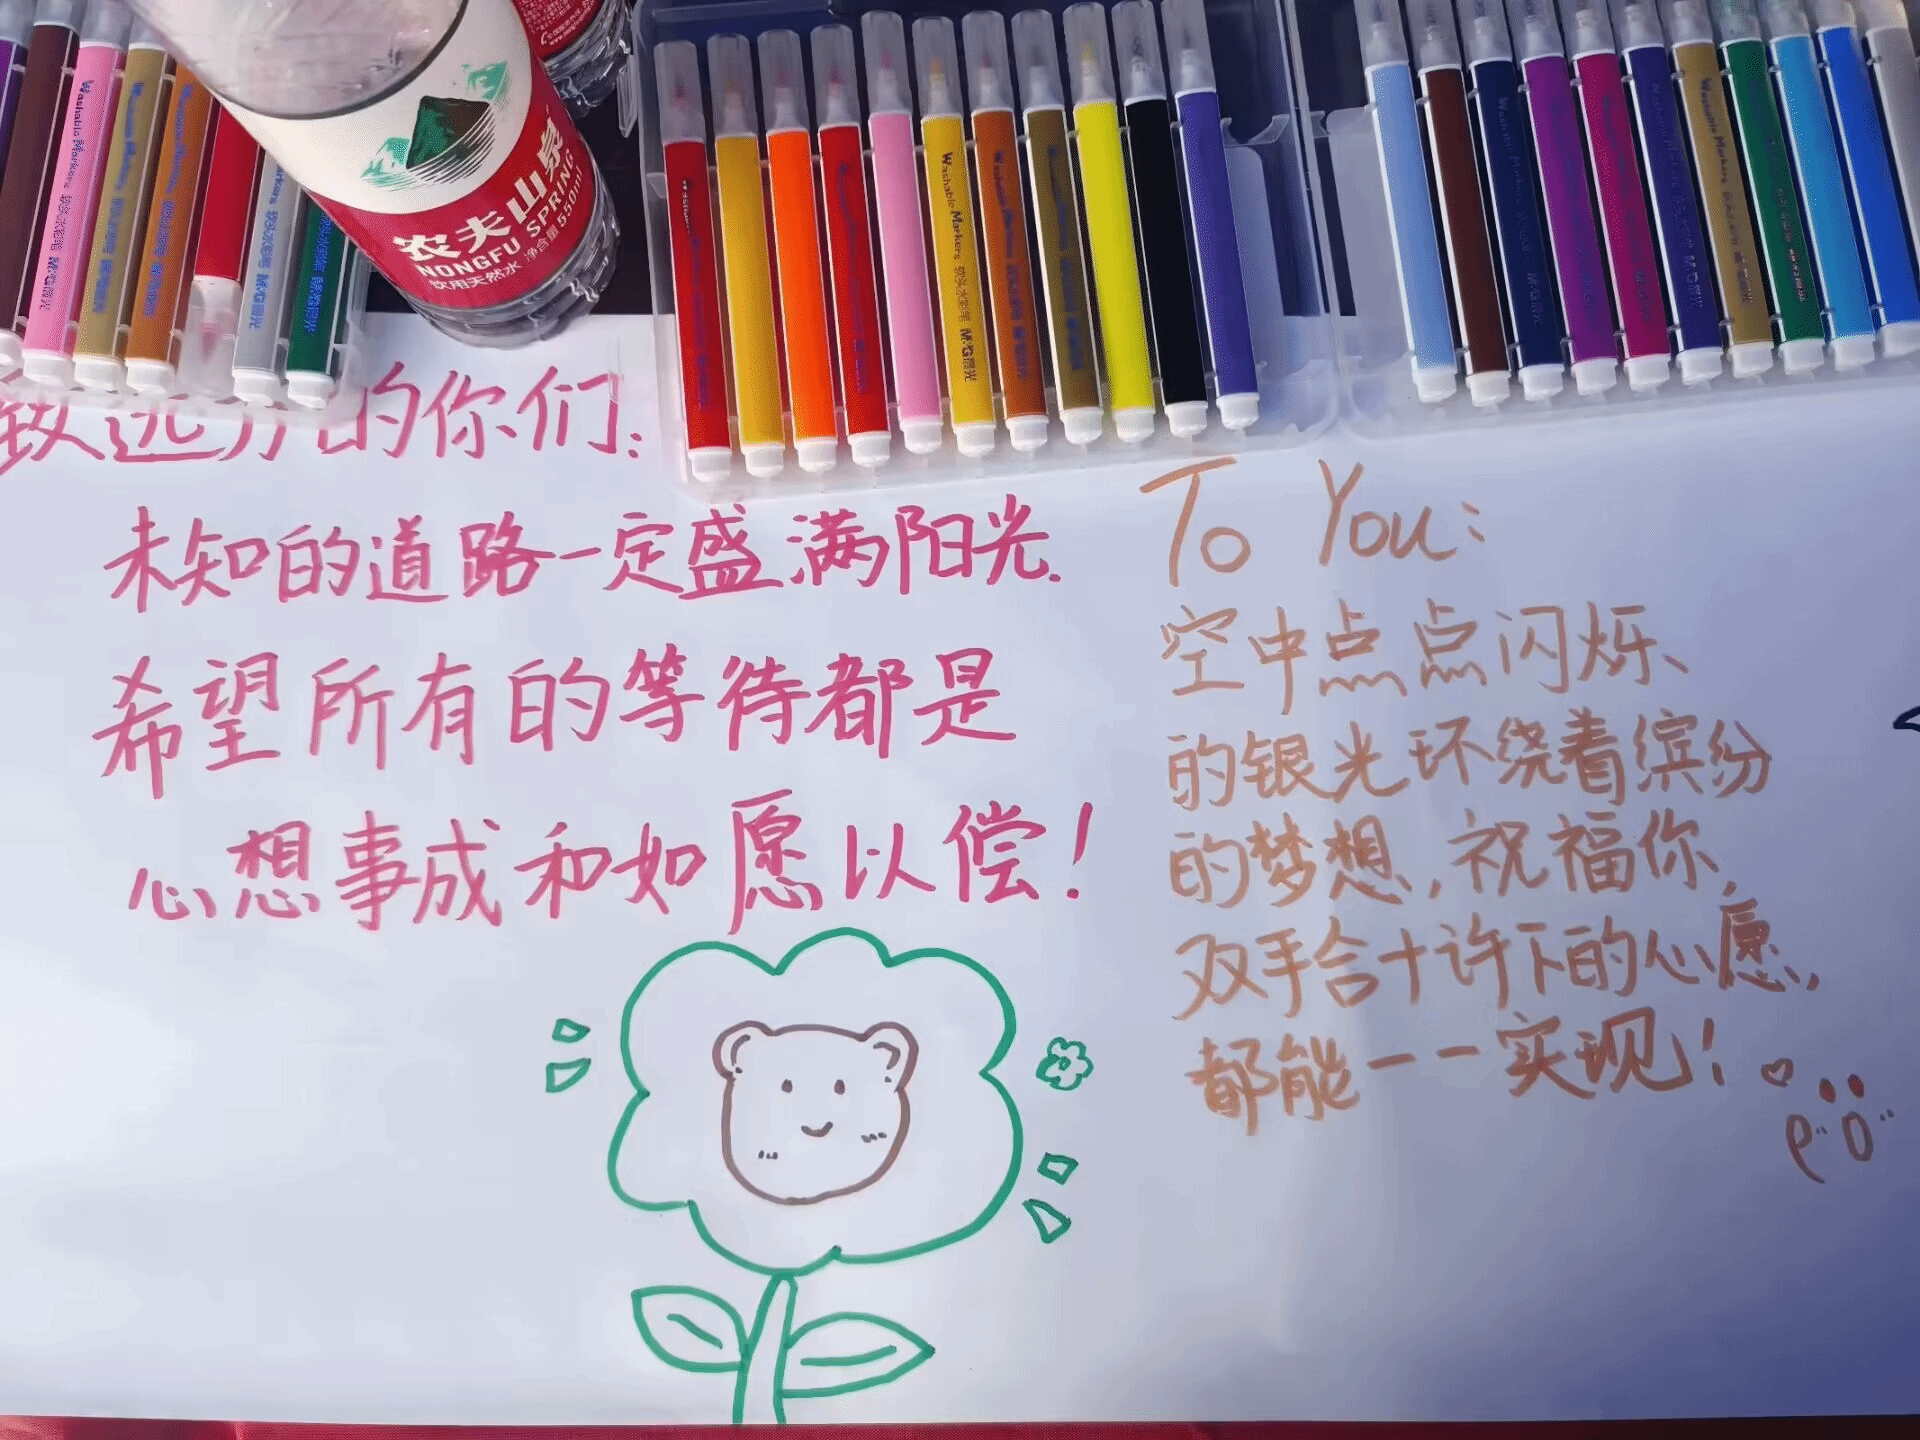 农夫山泉
NONGFU SPRING
饮用天然水 净含量 550ml
Washable Markers 软头水彩笔 M&G晨光
致远方的你们:
未知的道路一定盛满阳光.
希望所有的等待都是
心想事成和如愿以偿!
To You:
空中点点闪烁、
的银光环绕着缤纷
的梦想,祝福你,
双手合十许下的心愿,
都能一一实现!